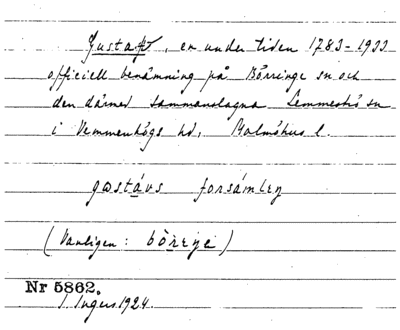 Gustaf, en under tiden 1783-1933
officiell benämning på Börringe sn och
den därmed sammanslagna Lemmeströ sn
i Vemmenhögs hd, Malmöhus l.
gɷstávs forsámlıŋ
(Vanligen: bö̀reŋe)
Nr 5862.
I. Ingers 1924.